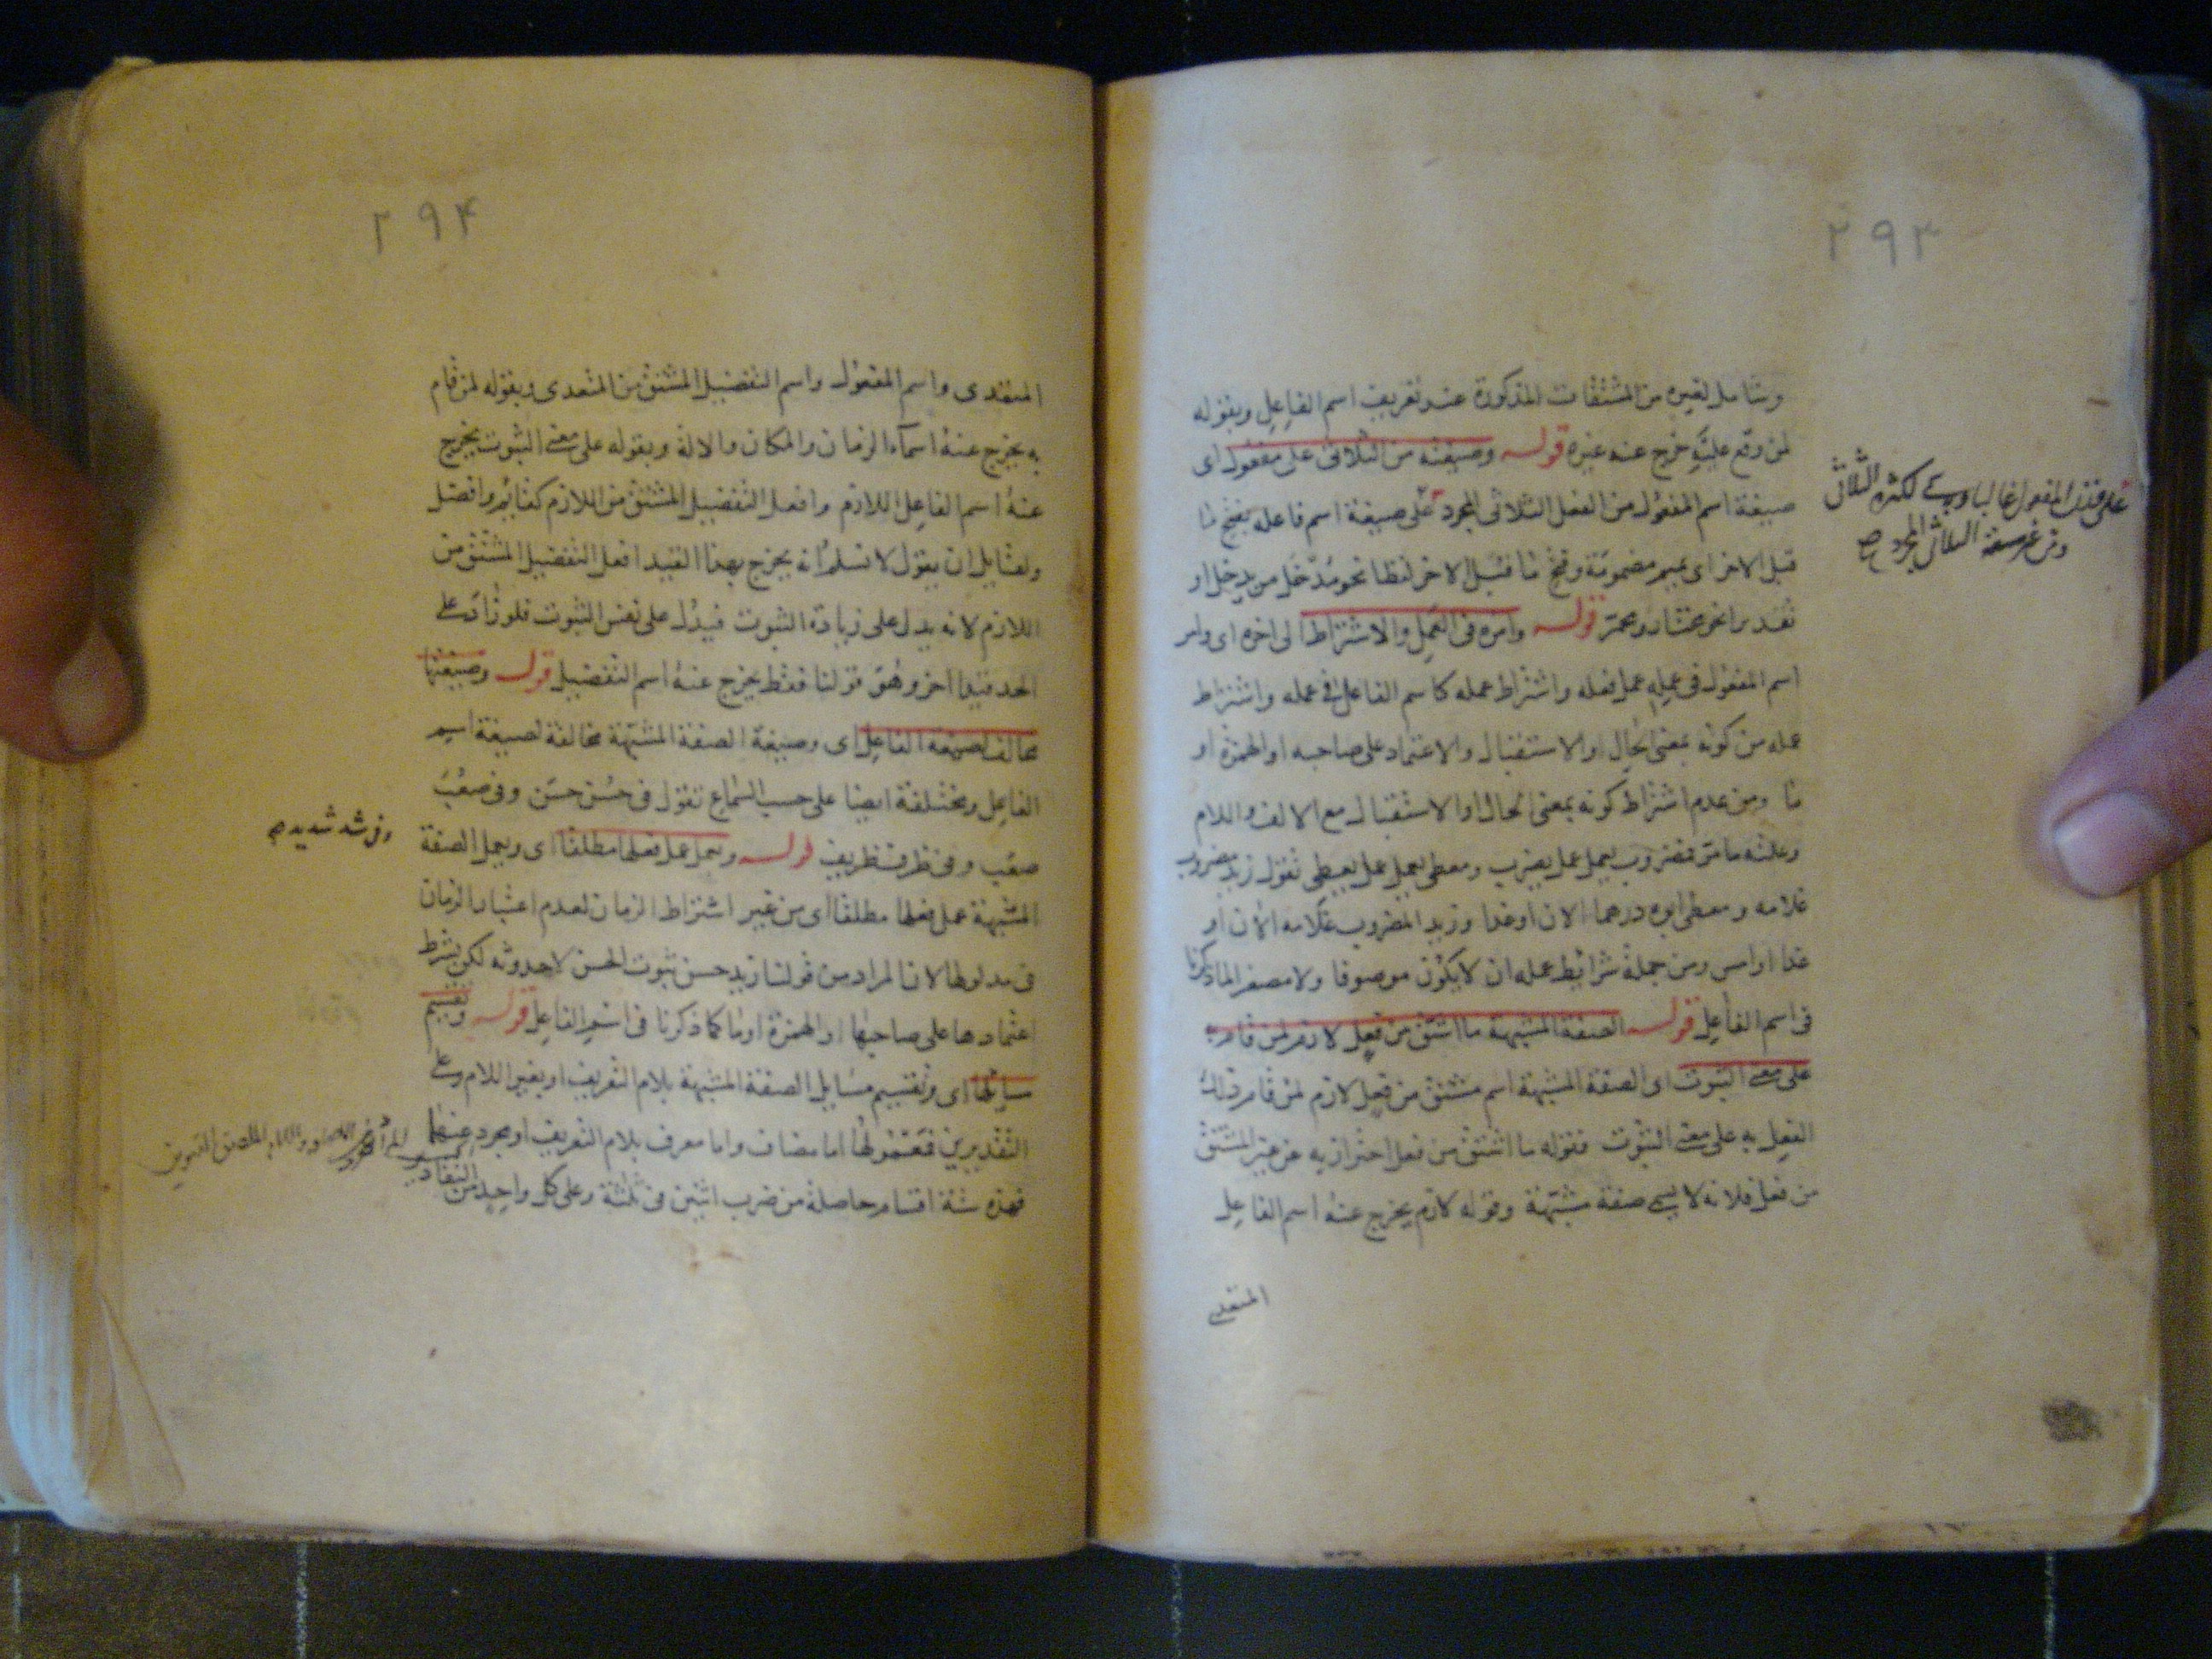 ٢٩٣
وشامل لغيره من المشتقات المذكورة عند تعريف اسم الفاعل وبقوله
لمن وقع عليه خرج عنه غيره قوله وصيغته من الثلاثى على مفعول اى
صيغة اسم المفعول من الفعل الثلاثى المجرد على صيغة اسم فاعله بفتح ما
قبل الاخر اى بميم مضمومة وفتح ما قبل الاخر لفظا نحو مُدخَل من يدخل او
تقديرا نحو مختار ومحمر قوله وامره فى العمل والاشتراط الى اخره اى وامر
اسم المفعول فى عمله عمل فعله واشتراط عمله كاسم الفاعل فى عمله واشتراط
عمله من كونه بمعنى الحال او الاستقبال والاعتماد على صاحبه او الهمزة او
ما ومن عدم اشتراط كونه بمعنى الحال او الاستقبال مع الالف واللام
وعلته ما مر فمضروب يعمل عمل يضرب ومعطى يعمل عمل يعطى تقول زيد مضروب
غلامه ومعطى ابوه درهما الان او غدا وزيد المضروب غلامه الان او
غدا او امس ومن جملة شرايط عمله ان لا يكون موصوفا ولا مصغرا لما ذكرنا
فى اسم الفاعل قوله الصفة المشبهة ما اشتق من فعل لازم لمن قام به
على معنى الثبوت اى الصفة المشبهة اسم مشتق من فعل لازم لمن قام ذلك
الفعل به على معنى الثبوت فقوله ما اشتق من فعل احتراز به عن غير المشتق
من فعل فلانه لا يسمى صفة مشبهة وقوله لازم يخرج عنه اسم الفاعل
المتعدى
على مفعول غالبا لكثرة الثلاثى
ومن غير صيغة الثلاثى المجرد صح
٢٩۴
المتعدى واسم المفعول واسم التفضيل المشتق من المتعدى وبقوله لمن قام
به يخرج عنه اسماء الزمان والمكان والالة وبقوله على معنى الثبوت يخرج
عنه اسم الفاعل اللازم وافعل التفضيل المشتق من اللازم كقائم وافضل
ولقايل ان يقول لا نسلم انه يخرج بهذا القيد افعل التفضيل المشتق من
اللازم لانه يدل على زيادة الثبوت فيدل على نفس الثبوت فلو زاد على
الحد قيدا اخر وهو قولنا فقط يخرج عنه اسم التفضيل قوله وصيغتها
مخالفة لصيغة الفاعل اى وصيغة الصفة المشبهة مخالفة لصيغة اسم
الفاعل ومختلفة ايضا على حسب السماع تقول فى حسُن حسَن وفى صعُبَ
صعْب وفى ظرف ظريف قوله وتعمل عمل فعلها مطلقا اى وتعمل الصفة
المشبهة عمل فعلها مطلقا اى من غير اشتراط الزمان لعدم اعتبار الزمان
فى مدلولها لان المراد من قولنا زيد حسن ثبوت الحسن لا حدوثه لكن بشرط
اعتمادها على صاحبها او الهمزة او ما كما ذكرنا فى اسم الفاعل قوله وتقسيم
مسايلها اى وتقسيم مسايل الصفة المشبهة بلام التعريف او بغير اللام وعلى
التقديرين فمعمولها اما مضاف واما معرف بلام التعريف او مجرد عنهما
فهذه ستة اقسام حاصلة من ضرب اثنين فى ثلثة وعلى كل واحد من التقادير
وفى شد شديد صح